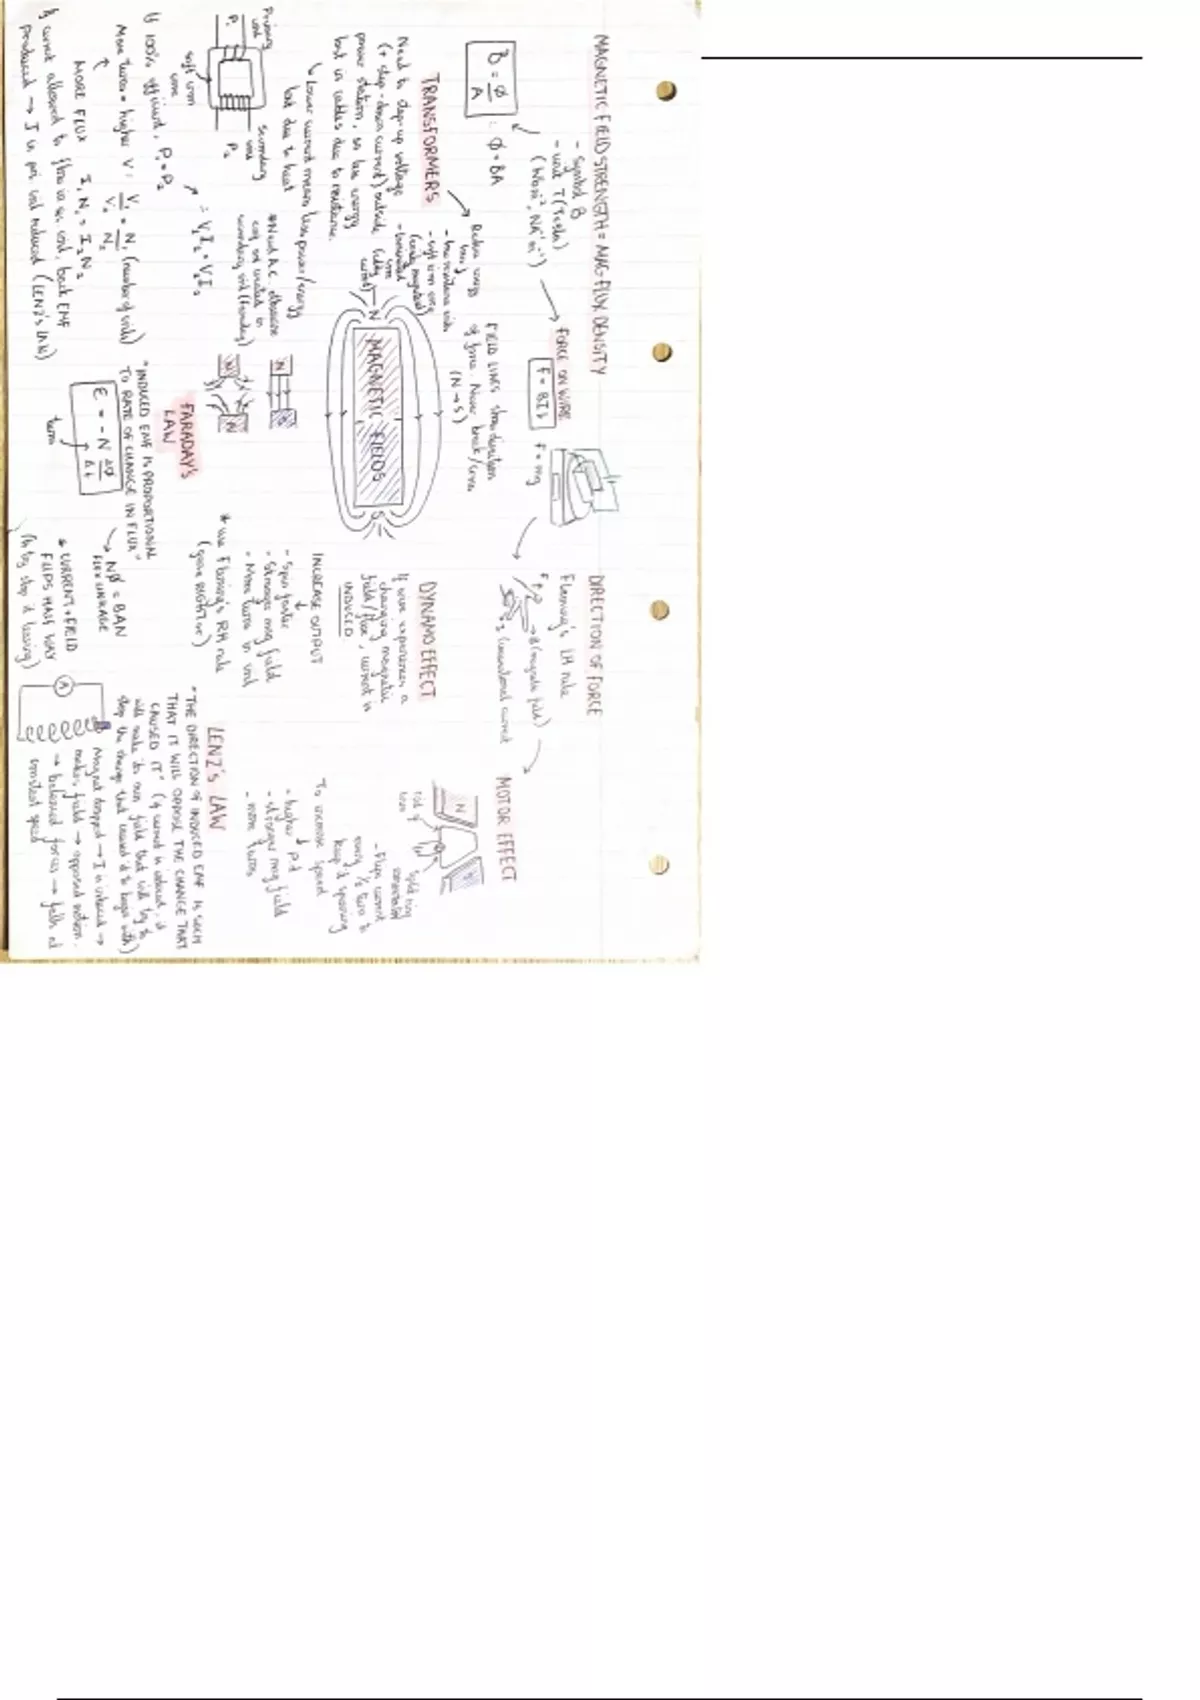 MAGNETIC FIELD STRENGTH = MAG. FLUX DENSITY
- symbol B
- unit T (Tesla)
B = ø/A
∴ ø = BA
FORCE ON WIRE
F = BIl
F = mg
DIRECTION OF FORCE
Fleming's LH rule
F
B (magnetic field)
I (conventional current)
MOTOR EFFECT
N
S
coil of
split ring
commutator
- Flips current
every ½ turn to
keep it spinning
To increase speed
- higher p.d
- stronger mag field
- more turns
FIELD LINES show direction
of force. Never break/cross
(N → S)
N
MAGNETIC FIELDS
S
DYNAMO EFFECT
If wire experiences a
changing magnetic
field/flux, current is
INDUCED.
INCREASE OUTPUT
- Spin faster
- Stronger mag field
- More turns in coil
* use Fleming's RH rule
TRANSFORMERS
Need to step-up voltage
(+ step-down current) outside
power station, so less energy
lost in cables due to resistance.
↳ Lower current means less power/energy
lost due to heat
Reduce energy
- low resistance coils
- soft iron core
(easily magnetised)
- laminated
core
(eddy
currents)
Primary
coil
P₁
secondary
coil
P₂
soft iron
core
* Need A.C. otherwise
emf not created in
secondary coil (Faraday)
If 100% efficient, P₁ = P₂
= V₁I₁ = V₂I₂
More turns = higher V : V₁/V₂ = N₁/N₂ (number of coils)
MORE FLUX
I₁N₁ = I₂N₂
If current allowed to flow in sec coil, back EMF
produced → I in pri. coil reduced (LENZ's LAW)
N
S
N
N
FARADAY'S
LAW
"INDUCED EMF IS PROPORTIONAL
TO RATE OF CHANGE IN FLUX"
ε = -N Δø/Δt
turns
Nø = BAN
FLUX LINKAGE
* CURRENT + FIELD
FLIPS HALF WAY
(to try stop it leaving)
LENZ's LAW
"THE DIRECTION OF INDUCED EMF IS SUCH
THAT IT WILL OPPOSE THE CHANGE THAT
CAUSED IT" (if current is induced, it
will make its own field that will try to
stop the change that caused it to begin with)
A
Magnet dropped → I is induced →
makes field → opposed motion.
→ balanced forces → falls at
constant speed